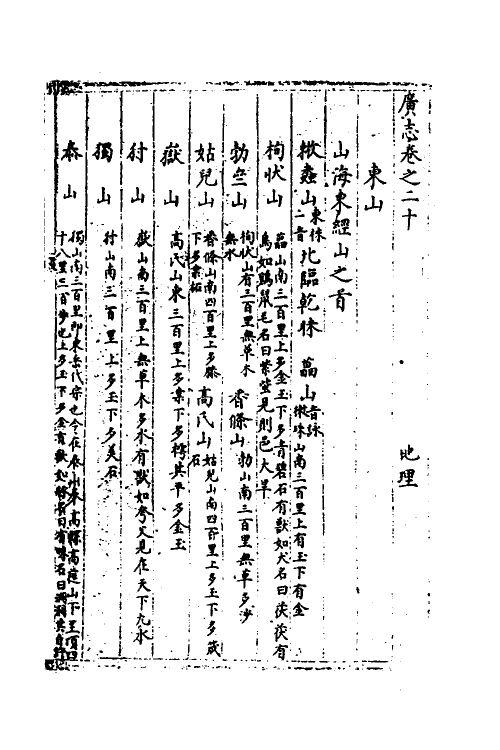 廣志卷之二十　地理
東山
山海東經山之首
樕𧑤山東株二音北臨乾昧　藟山音詠樕𧑤山南三百里上有玉下有金
枸狀山藟山南三百里上多金玉下多青碧石有獸如犬名曰㺉㺉有鳥如鷄鼠毛名曰𧊅鼠見則邑大旱
勃亝山枸狀山南三百里無草木無水　番條山勃山南三百里無草多沙
姑兒山番條山南四百里上多漆下多桑柘　高氏山姑兒山南四百里上多玉下多箴石
嶽山高氏山東三百里上多桑下多樗其下多金玉
犲山嶽山南三百里上無草木多水有獸如夸父見在天下大水
獨山犲山南三百里上多玉下多美石
泰山獨山南三百里即東岳代宗也今在泰山奉高縣高庭山下至頂四十八里三百步也上多玉下多金有獸如豚有珠名曰狪狪其自詨